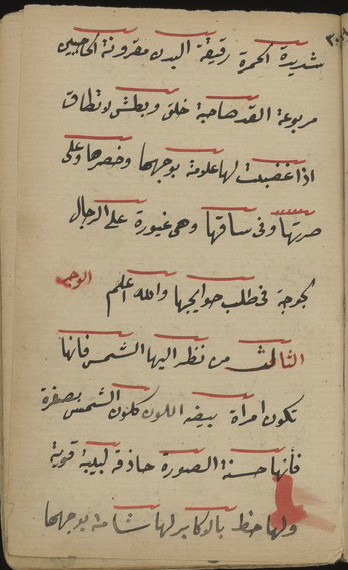 شديدة الحمرة رقيقة البدن مقرونة الحاجبين
مربوعة القد صاحبة خلق وبطش لا تطاق
اذا غضبت لها علومة بوجهها وخصرها وعلى
صرتها وفى ساقها وهى غيورة على الرجال
لجوجة فى طلب حوايجها والله اعلم الوجه
الثالث من نظر اليها الشمس فانها
تكون امراة بيضه اللون كلون الشمس بصفرة
فأنها حسنة الصورة حاذقه لبيبة قوية
ولها حظ بالاكابر لها شامة بوجهها